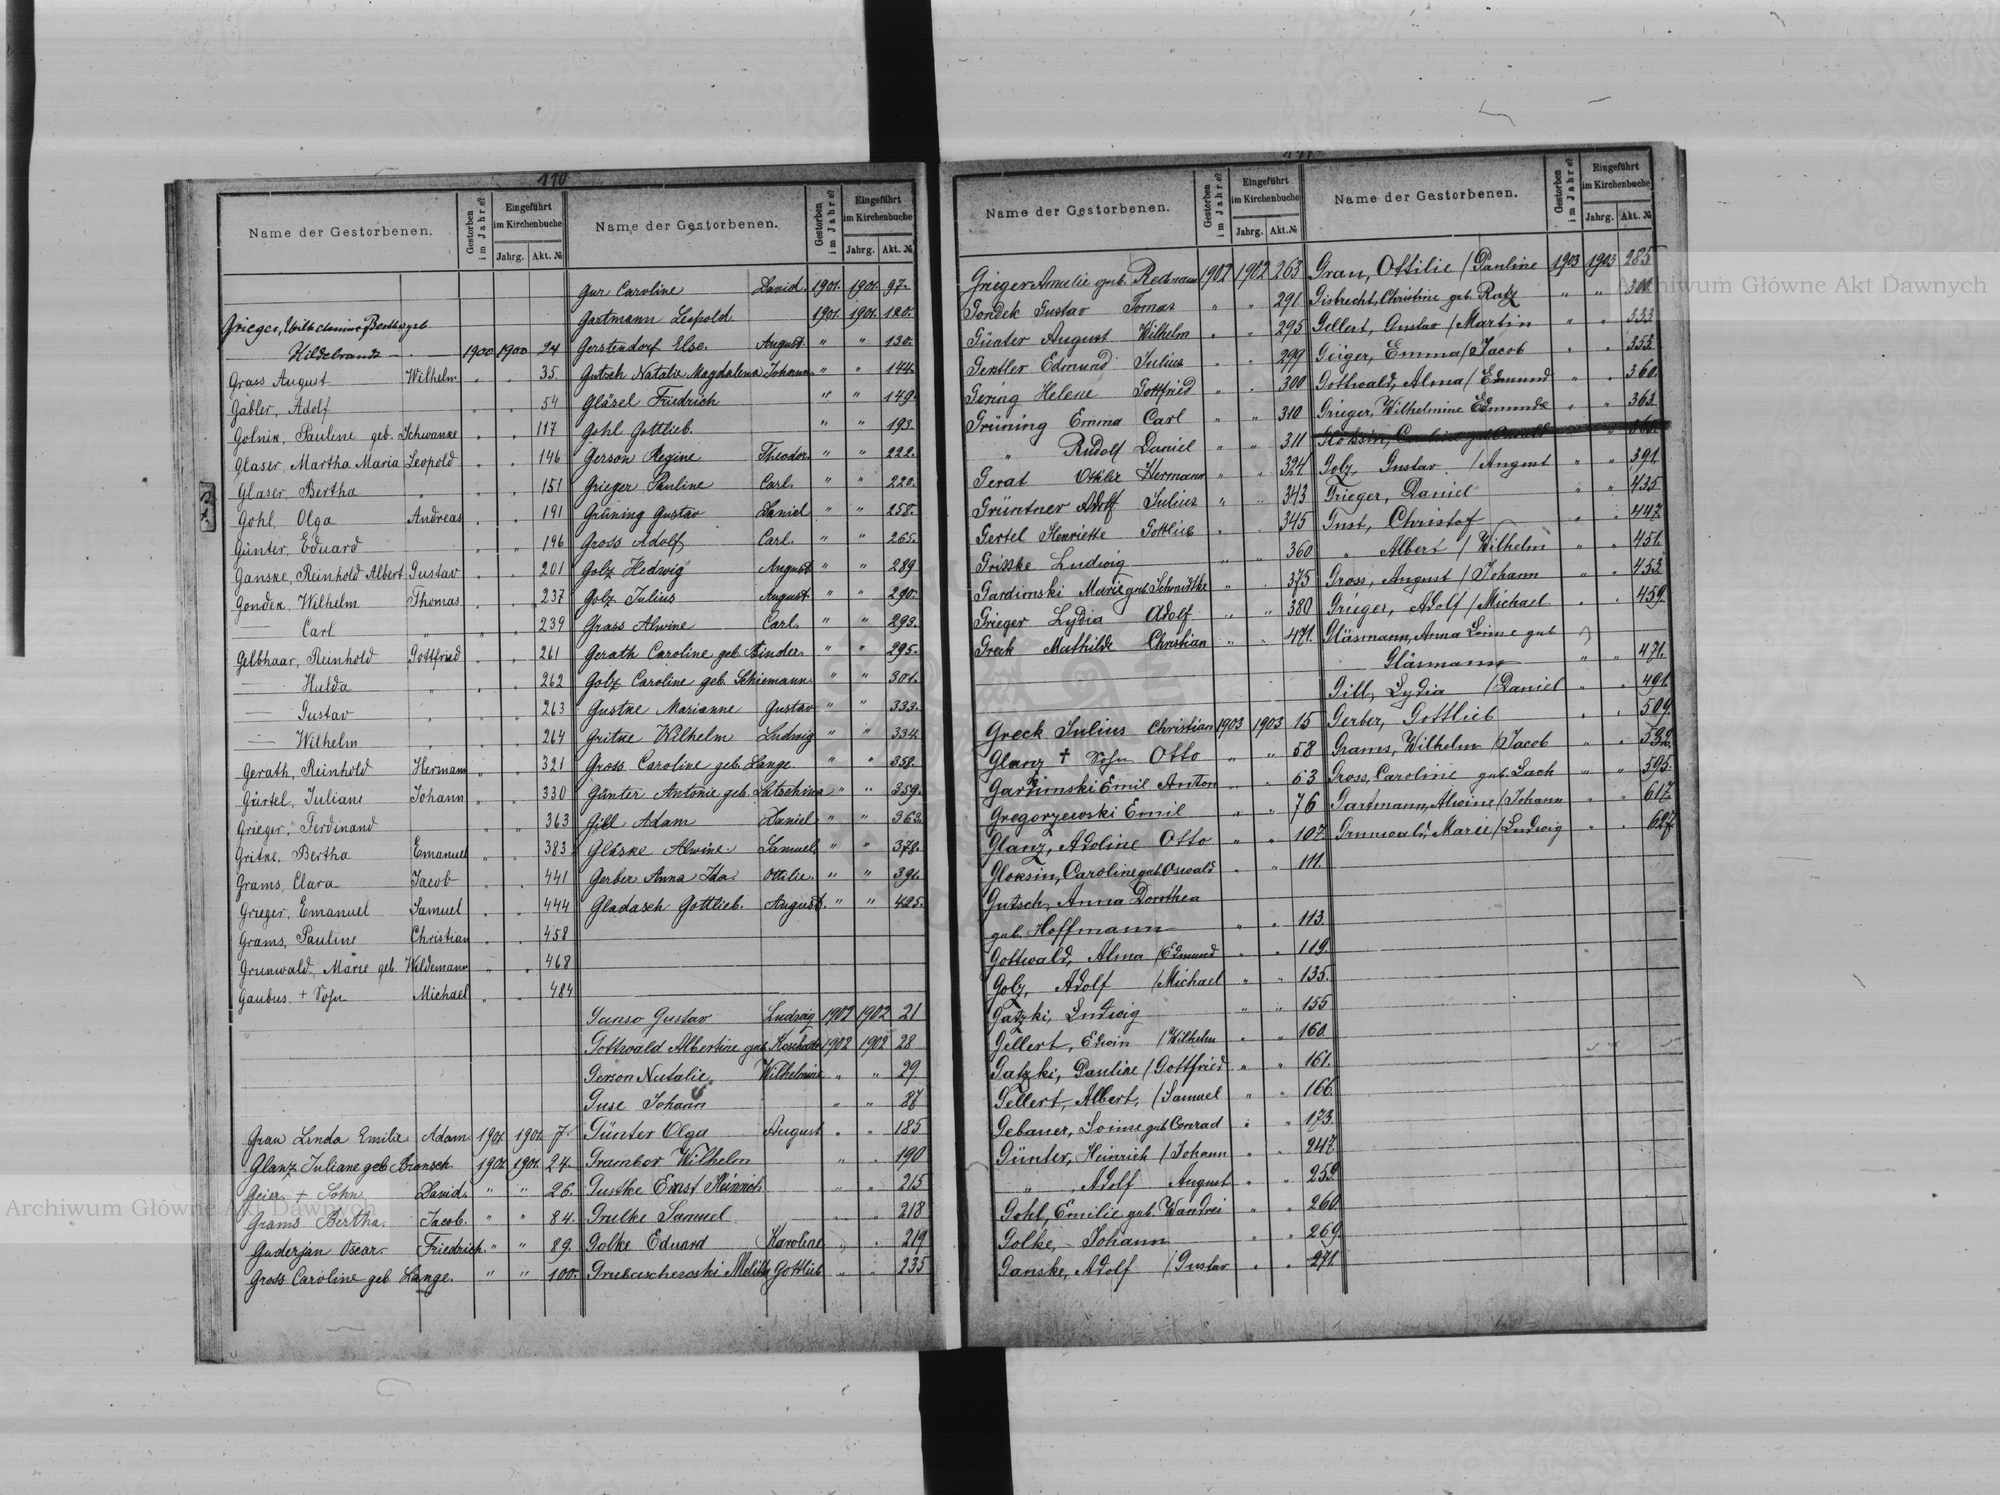 110
Name der Gestorbenen.
Gestorben im Jahre
Eingeführt im Kirchenbuche
Jahrg.
Akt. №
Grieger, Wilhelmine Bertha geb.
Hildebrandt 1900 1900 24
Grass August Wilhelm " " 35
Gäbler, Adolf " " 54
Golnik, Pauline geb. Schwanke " " 117
Glaser, Martha Maria Leopold " " 146
Glaser, Bertha " " " 151
Gohl, Olga Andreas " " 191
Günter, Eduard " " 196
Ganske, Reinhold Albert Gustav " " 201
Gondek, Wilhelm Thomas " " 237
— Carl " " " 239
Gelbhaar, Reinhold Gottfried " " 261
— Hulda " " " 262
— Gustav " " " 263
— Wilhelm " " " 264
Gerath, Reinhold Hermann " " 321
Gürtel, Juliane Johann " " 330
Grieger, Ferdinand " " 363
Gritke, Bertha Emanuel " " 383
Grams, Clara Jacob " " 441
Grieger, Emanuel Samuel " " 444
Grams, Pauline Christian " " 458
Grunwald, Marie geb. Wildemann " " 468
Gaubus + Sohn Michael " " 484
Grau Linda Emilie Adam 1901. 1901. 7.
Glanz Juliane geb. Bronsch 1901. 1901. 24.
Geier + Sohn David. " " 26.
Grams Bertha. Jacob. " " 84.
Guderjan Oscar. Friedrich. " " 89.
Gross Caroline geb Lange. " " 100.
Name der Gestorbenen.
Gestorben im Jahre
Eingeführt im Kirchenbuche
Jahrg.
Akt. №
Gur Caroline David. 1901. 1901. 97.
Gartmann Leopold. 1901. 1901. 120.
Gerstendorf Else. August. " " 130.
Gutsch Natalie Magdalena Johann " " 144.
Gläsel Friedrich " " 149.
Gohl Gottlieb. " " 193.
Gerson Regine Theodor. " " 222.
Grieger Pauline Carl. " " 220.
Grüning Gustav Daniel " " 258.
Gross Adolf Carl. " " 265.
Golz Hedwig August " " 289
Golz Julius August " " 290.
Grass Alwine Carl. " " 293.
Gerath Caroline geb. Binder. " " 295.
Golz Caroline geb. Schiemann. " " 301.
Gustke Marianne Gustav " " 333.
Gritke Wilhelm Ludwig " " 334.
Gross Caroline geb. Lange. " " 358.
Günter Antonie geb. " " 359.
Gill Adam Daniel " " 363.
Gläske Alwine. Samuel. " " 378.
Gerber Anna Ida. Ottilie. " " 391.
Gladasch Gottlieb. August. " " 425.
Ganso Gustav Ludwig 1902 1902 21
Gottwald Albertine geb. 1902 1902 28
Gerson Natalie Wilhelmine " " 29.
Guse Johann " " 87
Günter Olga August " " 185
Grambor Wilhelm " " 190
Gustke Ernst Heinrich " " 215
Grulke Samuel " " 218
Golke Eduard Karoline " " 219
Gottlieb " " 235
111
Name der Gestorbenen.
Gestorben im Jahre
Eingeführt im Kirchenbuche
Jahrg.
Akt. №
Grieger Amelie geb. 1902 1902 263
Gondek Gustav Tomas " " 291.
Günter August Wilhelm " " 295
Gertler Edmund Julius " " 299
Gering Helene Gottfried " " 300
Grüning Emma Carl " " 310
" Rudolf Daniel " " 311
Gerat Ottilie Hermann " " 324.
Grüntner Adolf Julius " " 343
Gertel Henriette Gottlieb " " 345
Griske Ludwig " " 360
Gardimski Marie geb. Schmidtke " " 375
Grieger Lydia Adolf " " 380
Greck Mathilde Christian " " 471.
Greck Julius Christian 1903 1903 15
Glanz + Sohn Otto " " 58
Gardimski Emil Anton " " 63
Gregorzewski Emil " " 76
Glanz, Adoline Otto " " 107.
Gloksin, Caroline geb. Oswald " " 111.
Gutsch, Anna Dorothea
geb. Hoffmann " " 113.
Gottwald, Alma /Edmund " " 119.
Golz, Adolf /Michael " " 135.
Gatzki, Ludwig " " 155
Gellert, Edwin /Wilhelm " " 160.
Gatzki, Pauline /Gottfried " " 161.
Gellert, Albert, /Samuel " " 166.
Gebauer, Louise geb. Conrad " " 173.
Günter, Heinrich /Johann " " 247.
" Adolf August " " 259.
Gohl, Emilie geb. Wandrei " " 260.
Golke, Johann " " 269.
Ganske, Adolf /Gustav " " 271.
Name der Gestorbenen.
Gestorben im Jahre
Eingeführt im Kirchenbuche
Jahrg.
Akt. №
Grau, Ottilie /Pauline 1903 1903 285
Gisbrecht, Christine geb. Ratz " " 300.
Gellert, Gustav /Martin " " 333
Geiger, Emma /Jacob " " 353.
Gottwald, Alma /Edmund " " 360.
Grieger, Wilhelmine Edmunde " " 363
Gloksin, Caroline geb. Oswald
Golz, Gustav /August " " 391.
Grieger, Daniel " " 435
Gust, Christof " " 447.
" Albert /Wilhelm " " 451.
Gross, August /Johann " " 453.
Grieger, Adolf /Michael " " 459.
Gläsmann, Anna Louise geb.
Gläsmann " " 471.
Gill, Lydia /Daniel " " 491.
Gerber, Gottlieb " " 509.
Grams, Wilhelm /Jacob " " 532.
Gross, Caroline geb. Lach " " 595.
Gartmann, Alwine /Johann " " 617.
Grunwald, Marie /Ludwig " " 627.
Archiwum Główne Akt Dawnych
Archiwum Główne Akt Dawnych